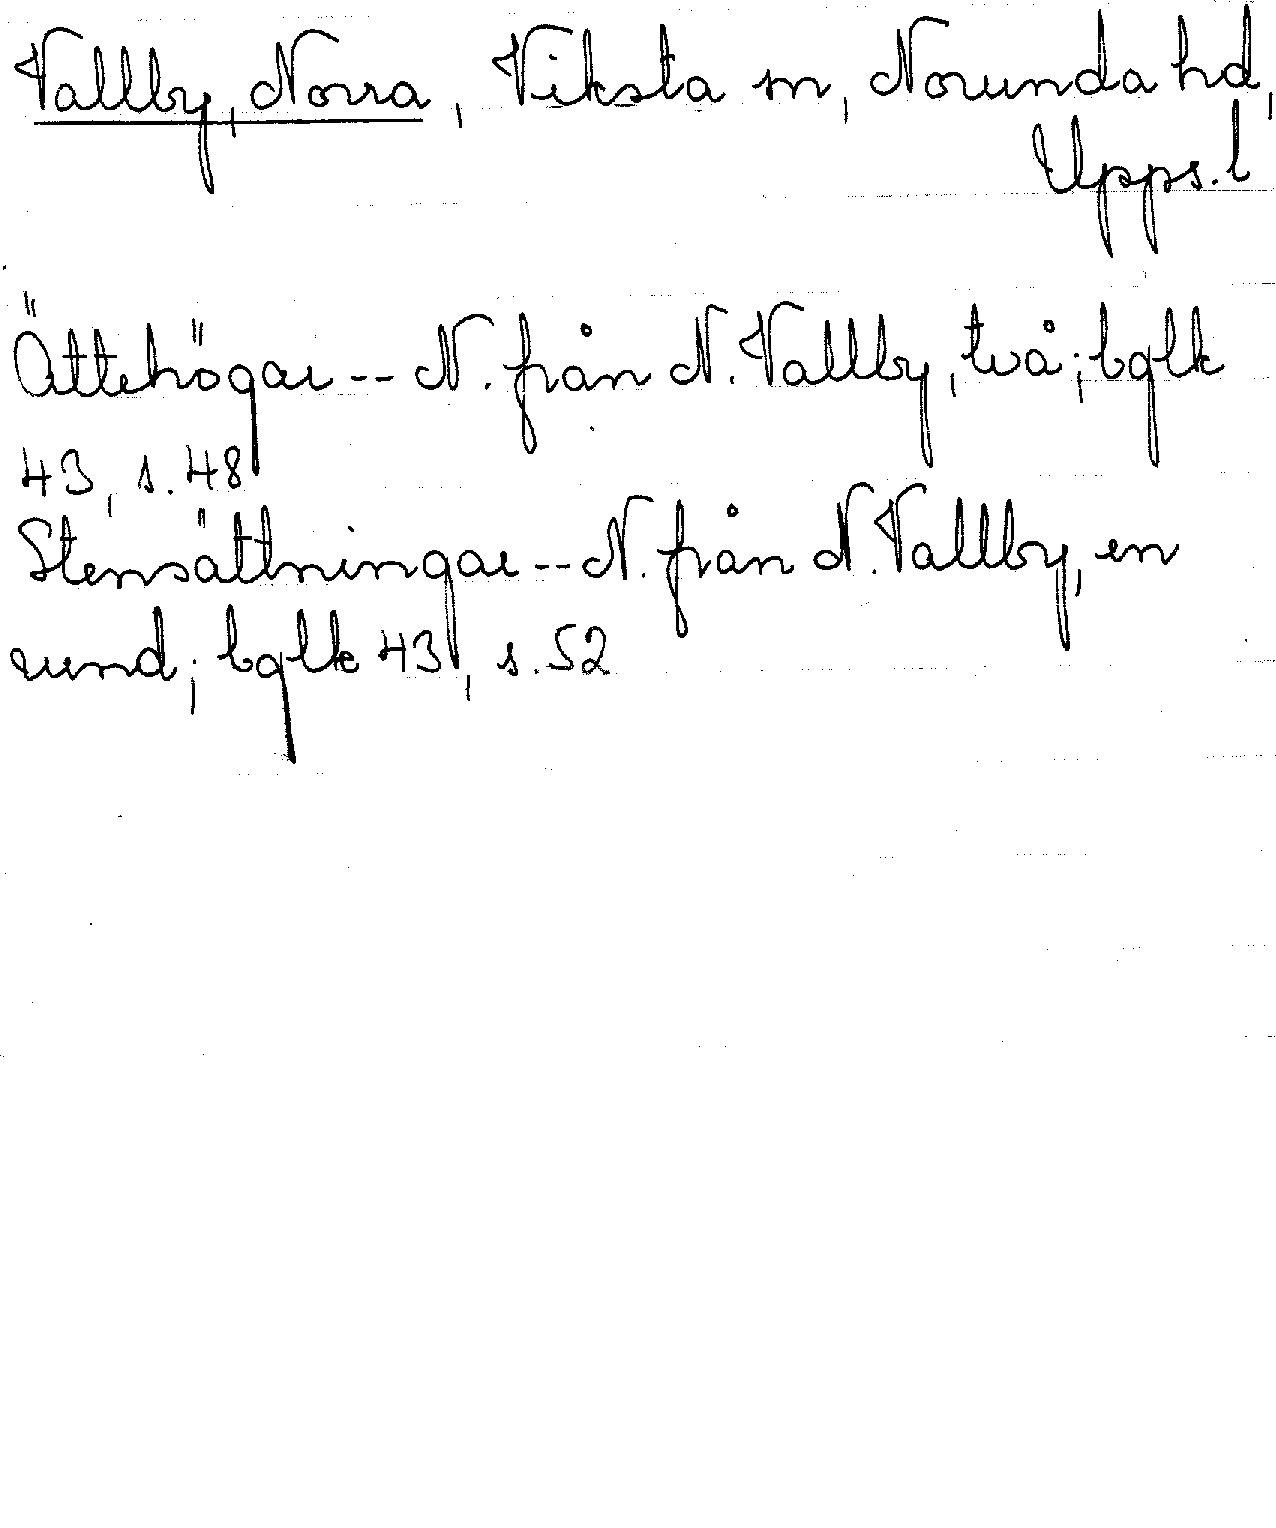 Vallby, Norra, Viksta sn, Norunda hd,
Upps. l
Ättehögar -- N. från N. Vallby, två; bglk
43, s. 48
Stensättningar -- N. från N. Vallby, en
rund; bglk 43, s. 52